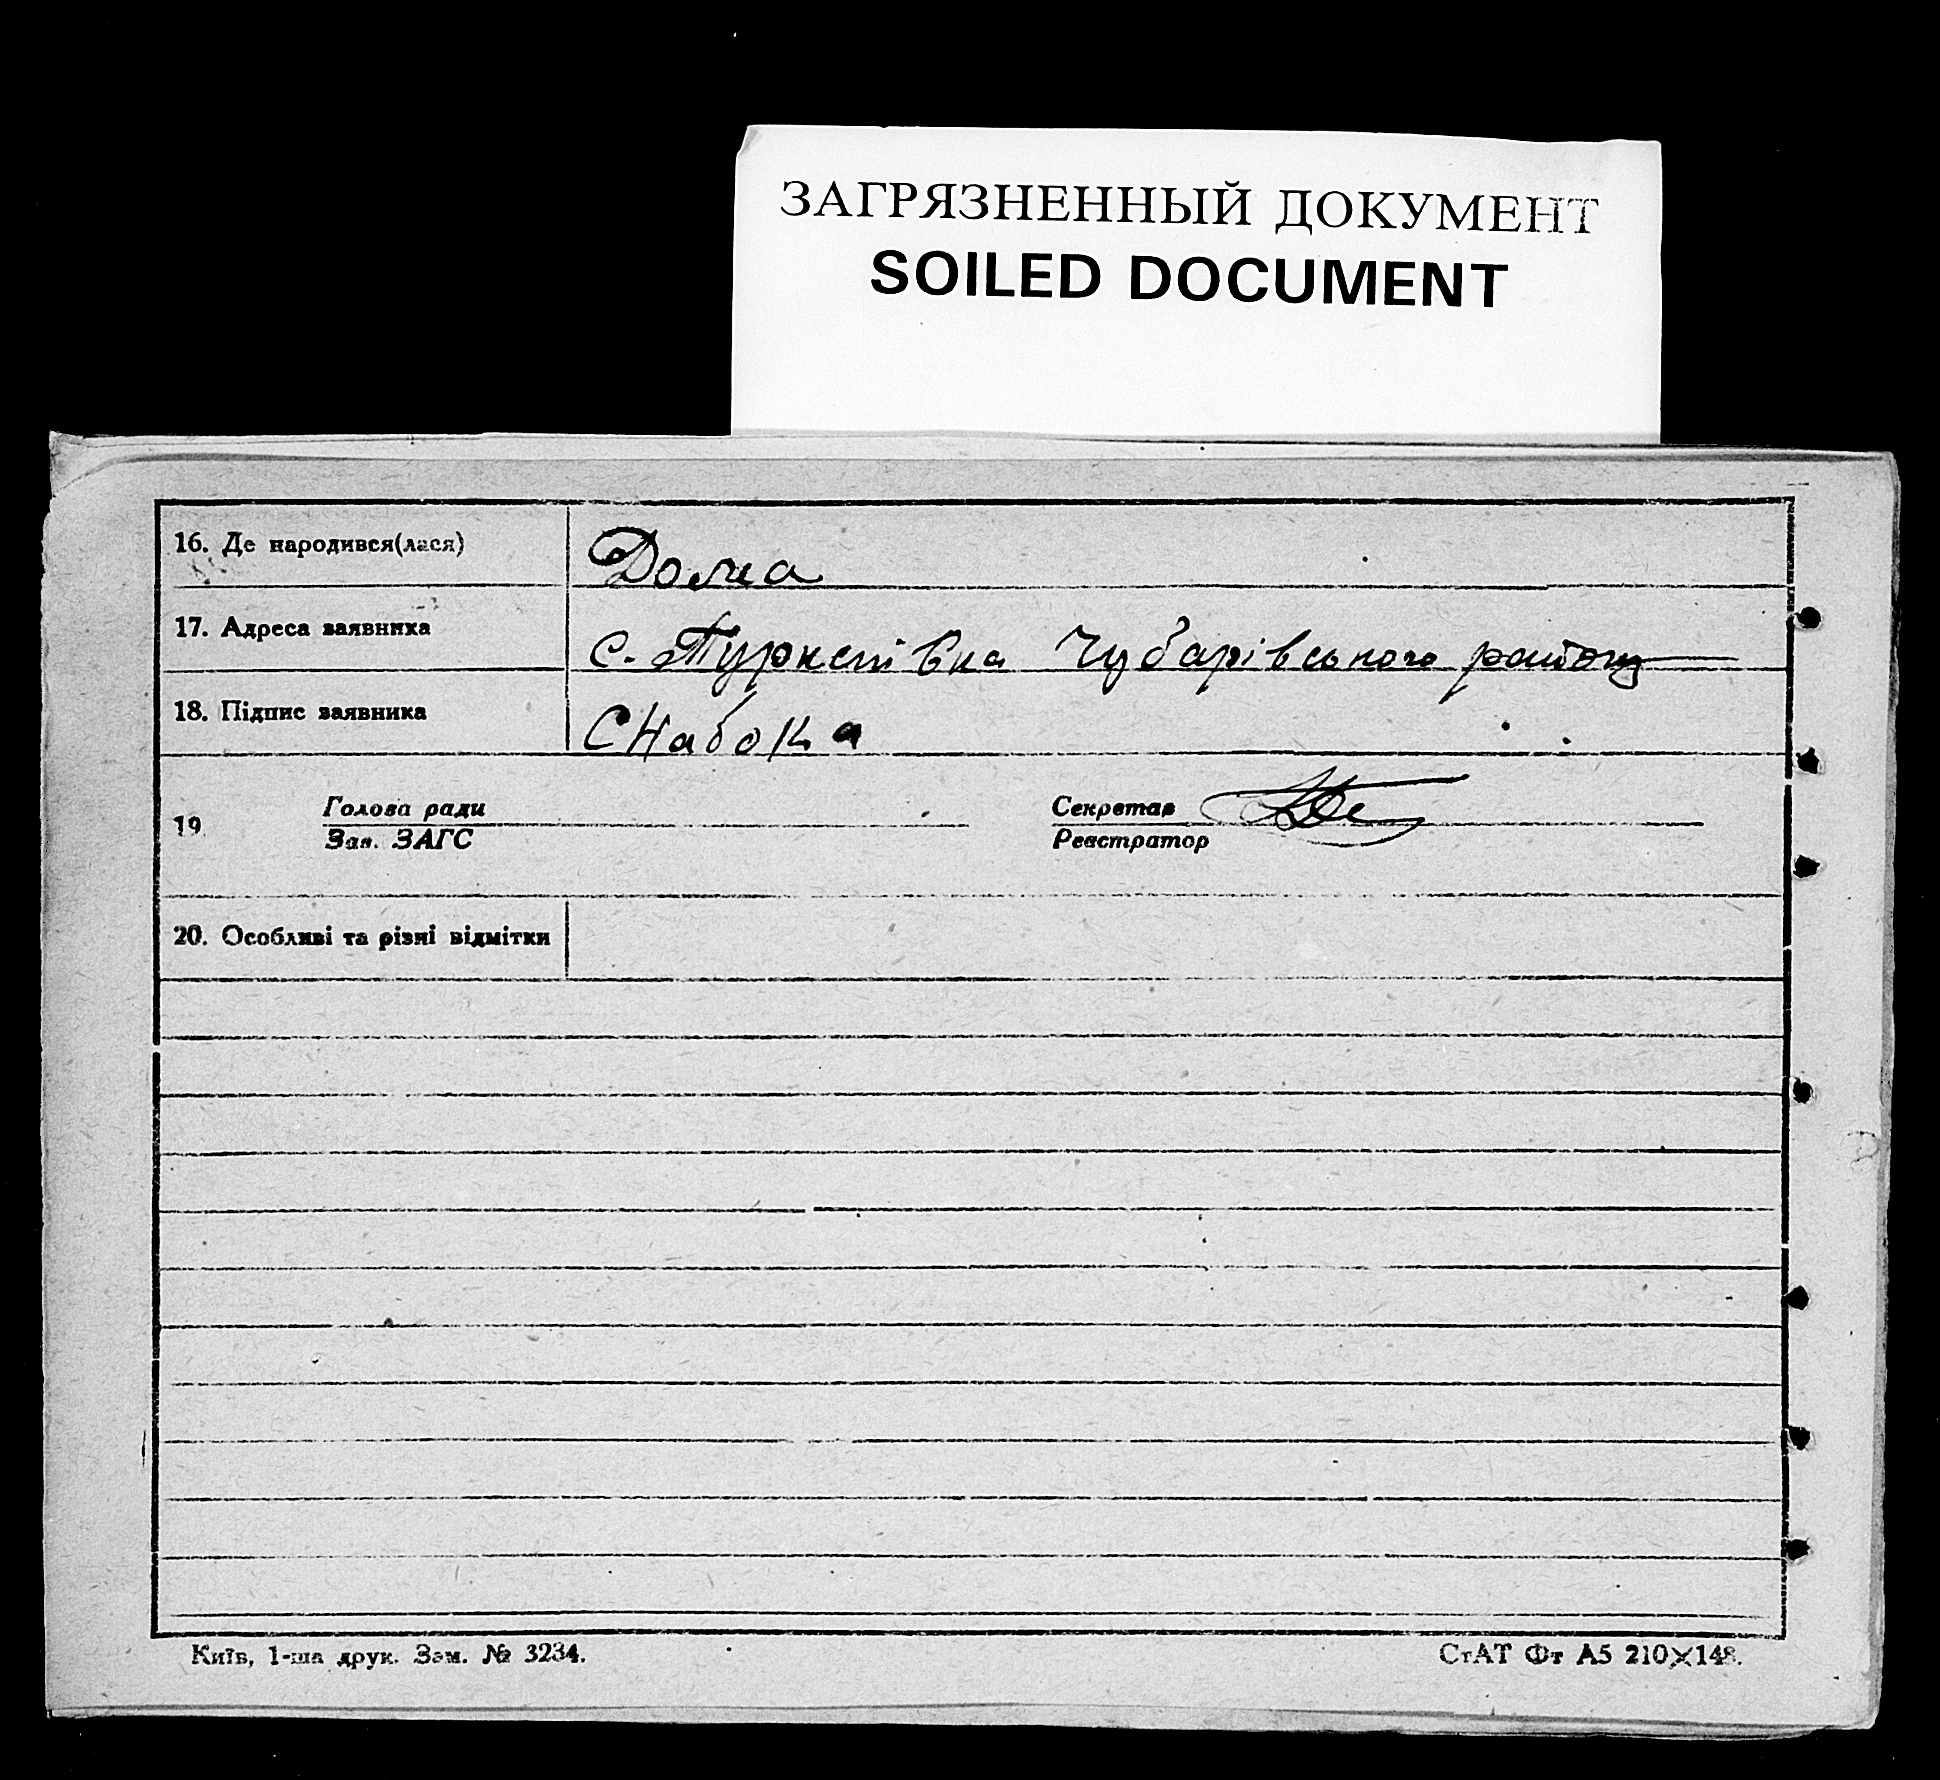 ЗАГРЯЗНЕННЫЙ ДОКУМЕНТ
SOILED DOCUMENT
16. Де народився(лася) Дома
17. Адреса заявника с. Туркенівка Чубарівського району
18. Підпис заявника СНабока
19
Голова ради Секретар
Зав. ЗАГС Реєстратор
20. Особливі та різні відмітки
Київ, 1-ша друк. Зам. № 3234. СтАТ Фт А5 210×148.